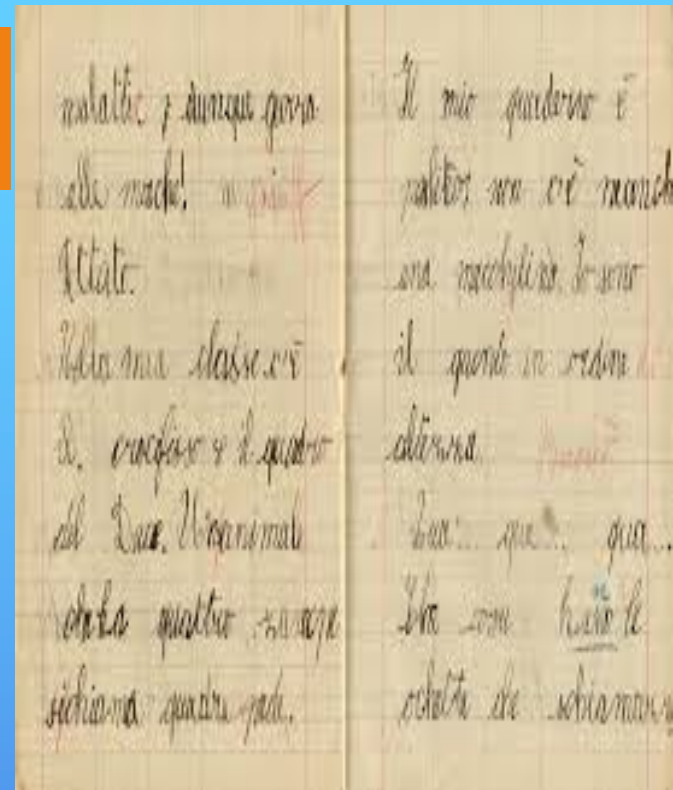 malattie e dunque guerra
alle mosche!
Dettato.
Nella mia classe c'è
il crocifisso e il quadro
del Duce. Un animale
che ha quattro zampe
si chiama quadrupede.
Il mio quaderno è
pulito; non c'è neanche
una macchiolina. Io sono
il quinto in ordine
Qua... qua... qua...
le
ochette che schiamazz